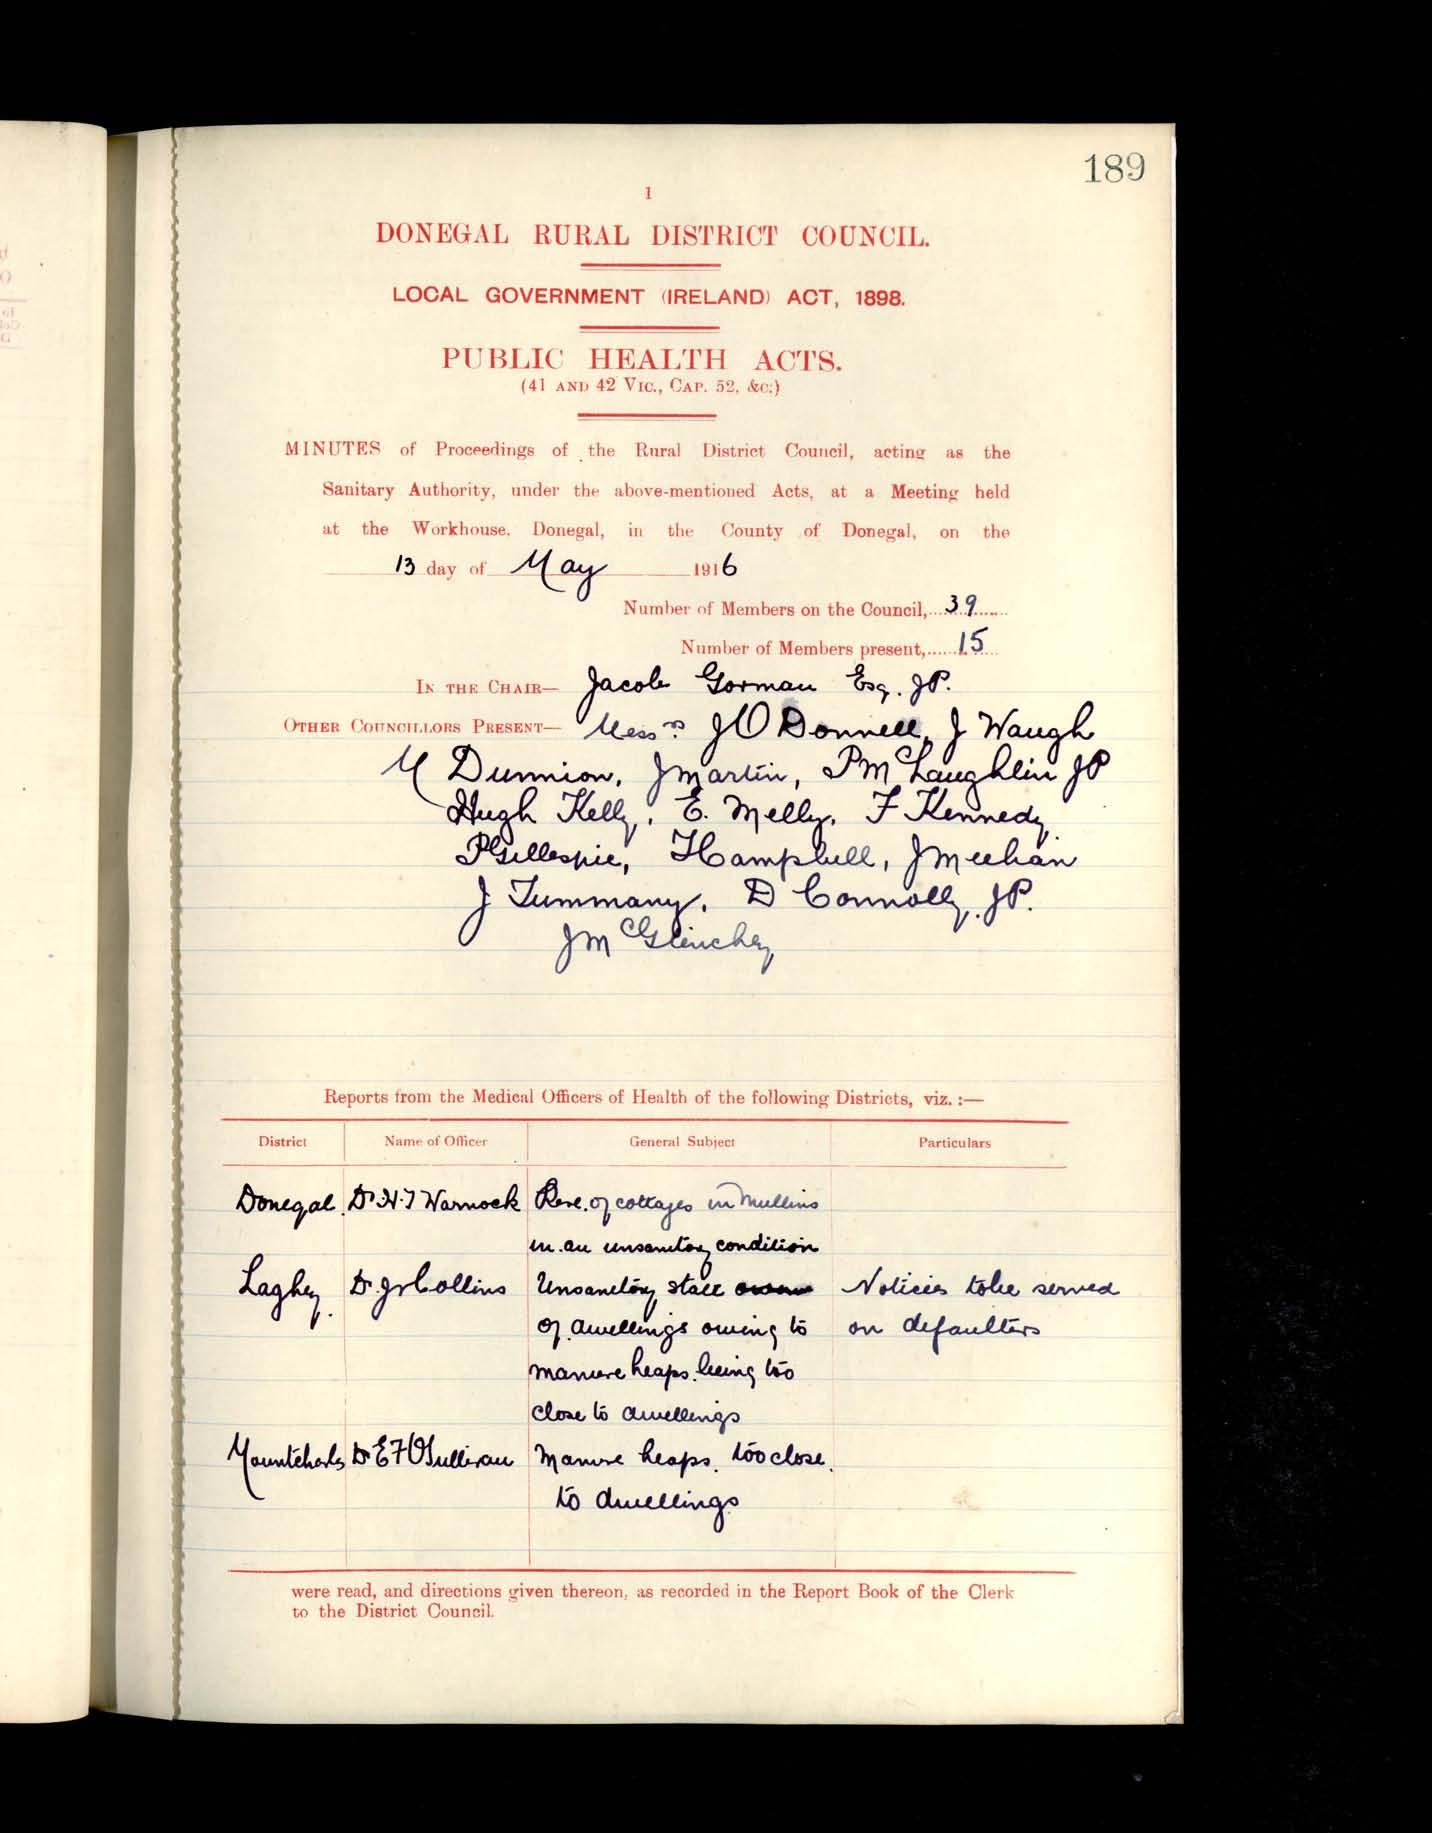 189
1
DONEGAL RURAL DISTRICT COUNCIL.
LOCAL GOVERNMENT (IRELAND) ACT, 1898.
PUBLIC HEALTH ACTS.
(41 AND 42 VIC., CAP. 52, &c.)
MINUTES of Proceedings of the Rural District Council, acting as the
Sanitary Authority, under the above-mentioned Acts, at a Meeting held
at the Workhouse, Donegal, in the County of Donegal, on the
13 day of May 1916
Number of Members on the Council, 39
Number of Members present, 15
IN THE CHAIR— Jacob Gorman Esq. JP.
OTHER COUNCILLORS PRESENT— Messrs J O Donnell, J Waugh
M Dunnion, J Martin, P McLaughlin JP
Hugh Kelly, E. Melly, F Kennedy
P Gillespie, H Campbell, J Meehan
J Tummany, D Connolly, JP.
J McGlinchey
Reports from the Medical Officers of Health of the following Districts, viz. :—
District Name of Officer General Subject Particulars
Donegal Dr. H. T Warnock of cottages in Mullins
in an unsanitary condition
Laghey Dr. Collins Unsanitary state Notices to be served
of dwellings owing to on defaulters
manure heaps being too
close to dwellings
Mountcharles Dr E F O'Sullivan Manure heaps too close
to dwellings
were read, and directions given thereon, as recorded in the Report Book of the Clerk
to the District Council.